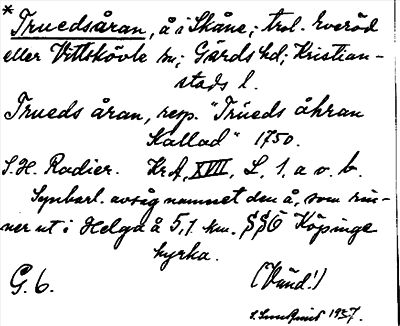 * Truedsåran, å i Skåne; trol. Everöd
eller Vittskövle sn; Gärds hd; Kristian-
stads l.
Trueds åran, resp. "Trueds åhran
Kallad" 1750.
S. H. Radier. KrA, XVIII, L, 1, a o. b.
Synbarl. avsåg namnet den å, som rin-
ner ut i Helgeå 5,1 km. SSÖ Köpinge
kyrka.
G. 6. (Vänd!)
S. Sundquist 1937.